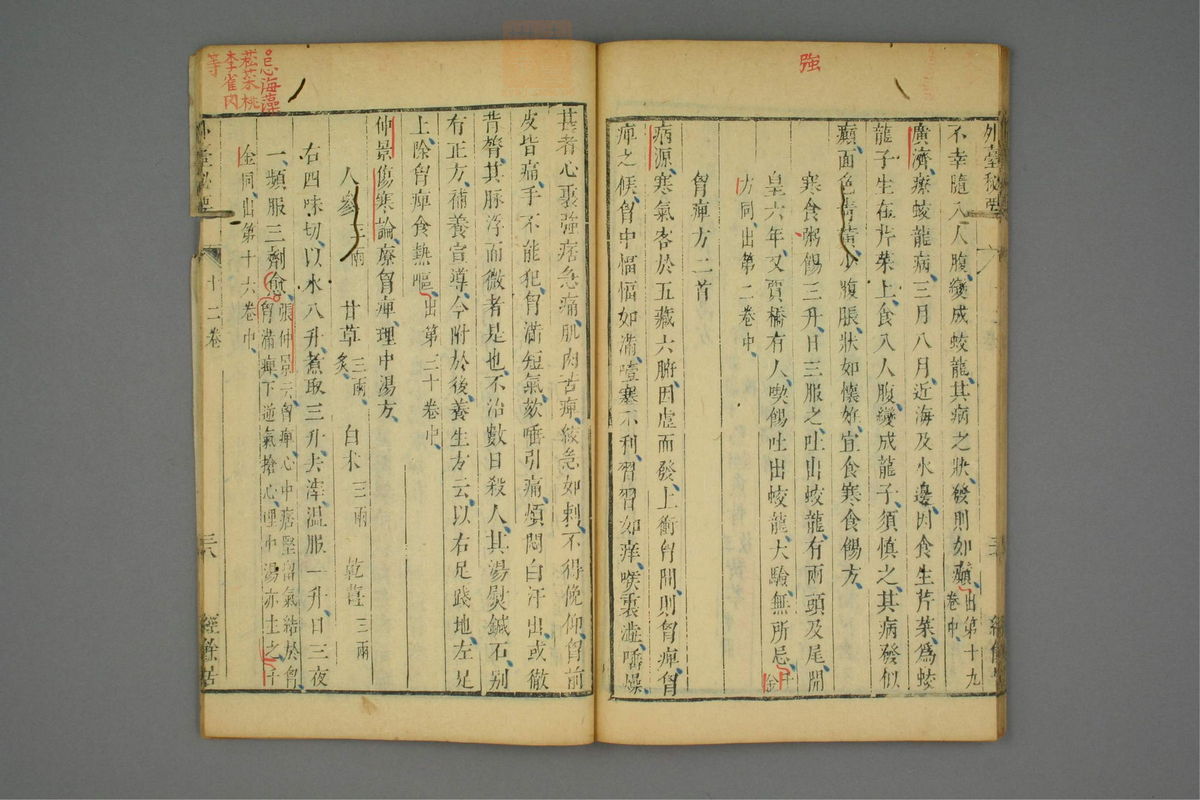 強
不幸隨入人腹變成蛟龍其病之狀發則如癲出第十九卷中
廣濟療蛟龍病三月八月近海及水邊因食生芹菜爲蛟
龍子生在芹菜上食入人腹變成龍子須慎之其病發似
癲面色青黃少腹脹狀如懷姙宜食寒食餳方
寒食粥餳三升日三服之吐出蛟龍有兩頭及尾開
皇六年又賈橋有人喫餳吐出蛟龍大驗無所忌千金
方同出第二卷中
胷痺方二首
病源寒氣客於五藏六腑因虛而發上衝胷間則胷痺胷
痺之候胷中愊愊如滿噎塞不利習習如痒喉裏澁唾燥
忌海藻
菘菜桃
李雀肉
等
甚者心裏強痞急痛肌肉苦痺絞急如刺不得俛仰胷前
皮皆痛手不能犯胷滿短氣欬唾引痛煩悶白汗出或徹
背膂其脉浮而微者是也不治數日殺人其湯熨鍼石別
有正方補養宣導今附於後養生方云以右足踐地左足
上除胷痺食熱嘔出第三十卷中
仲景傷寒論療胷痺理中湯方
人參三兩 甘草三兩炙 白朮三兩 乾薑三兩
右四味切以水八升煮取三升去滓温服一升日三夜
一頻服三劑愈張仲景云胷痺心中痞堅留氣結於胷
胷滿痺下逆氣搶心理中湯亦主之千
金同出第十六卷中
外臺秘要
十二卷
三六
經餘居